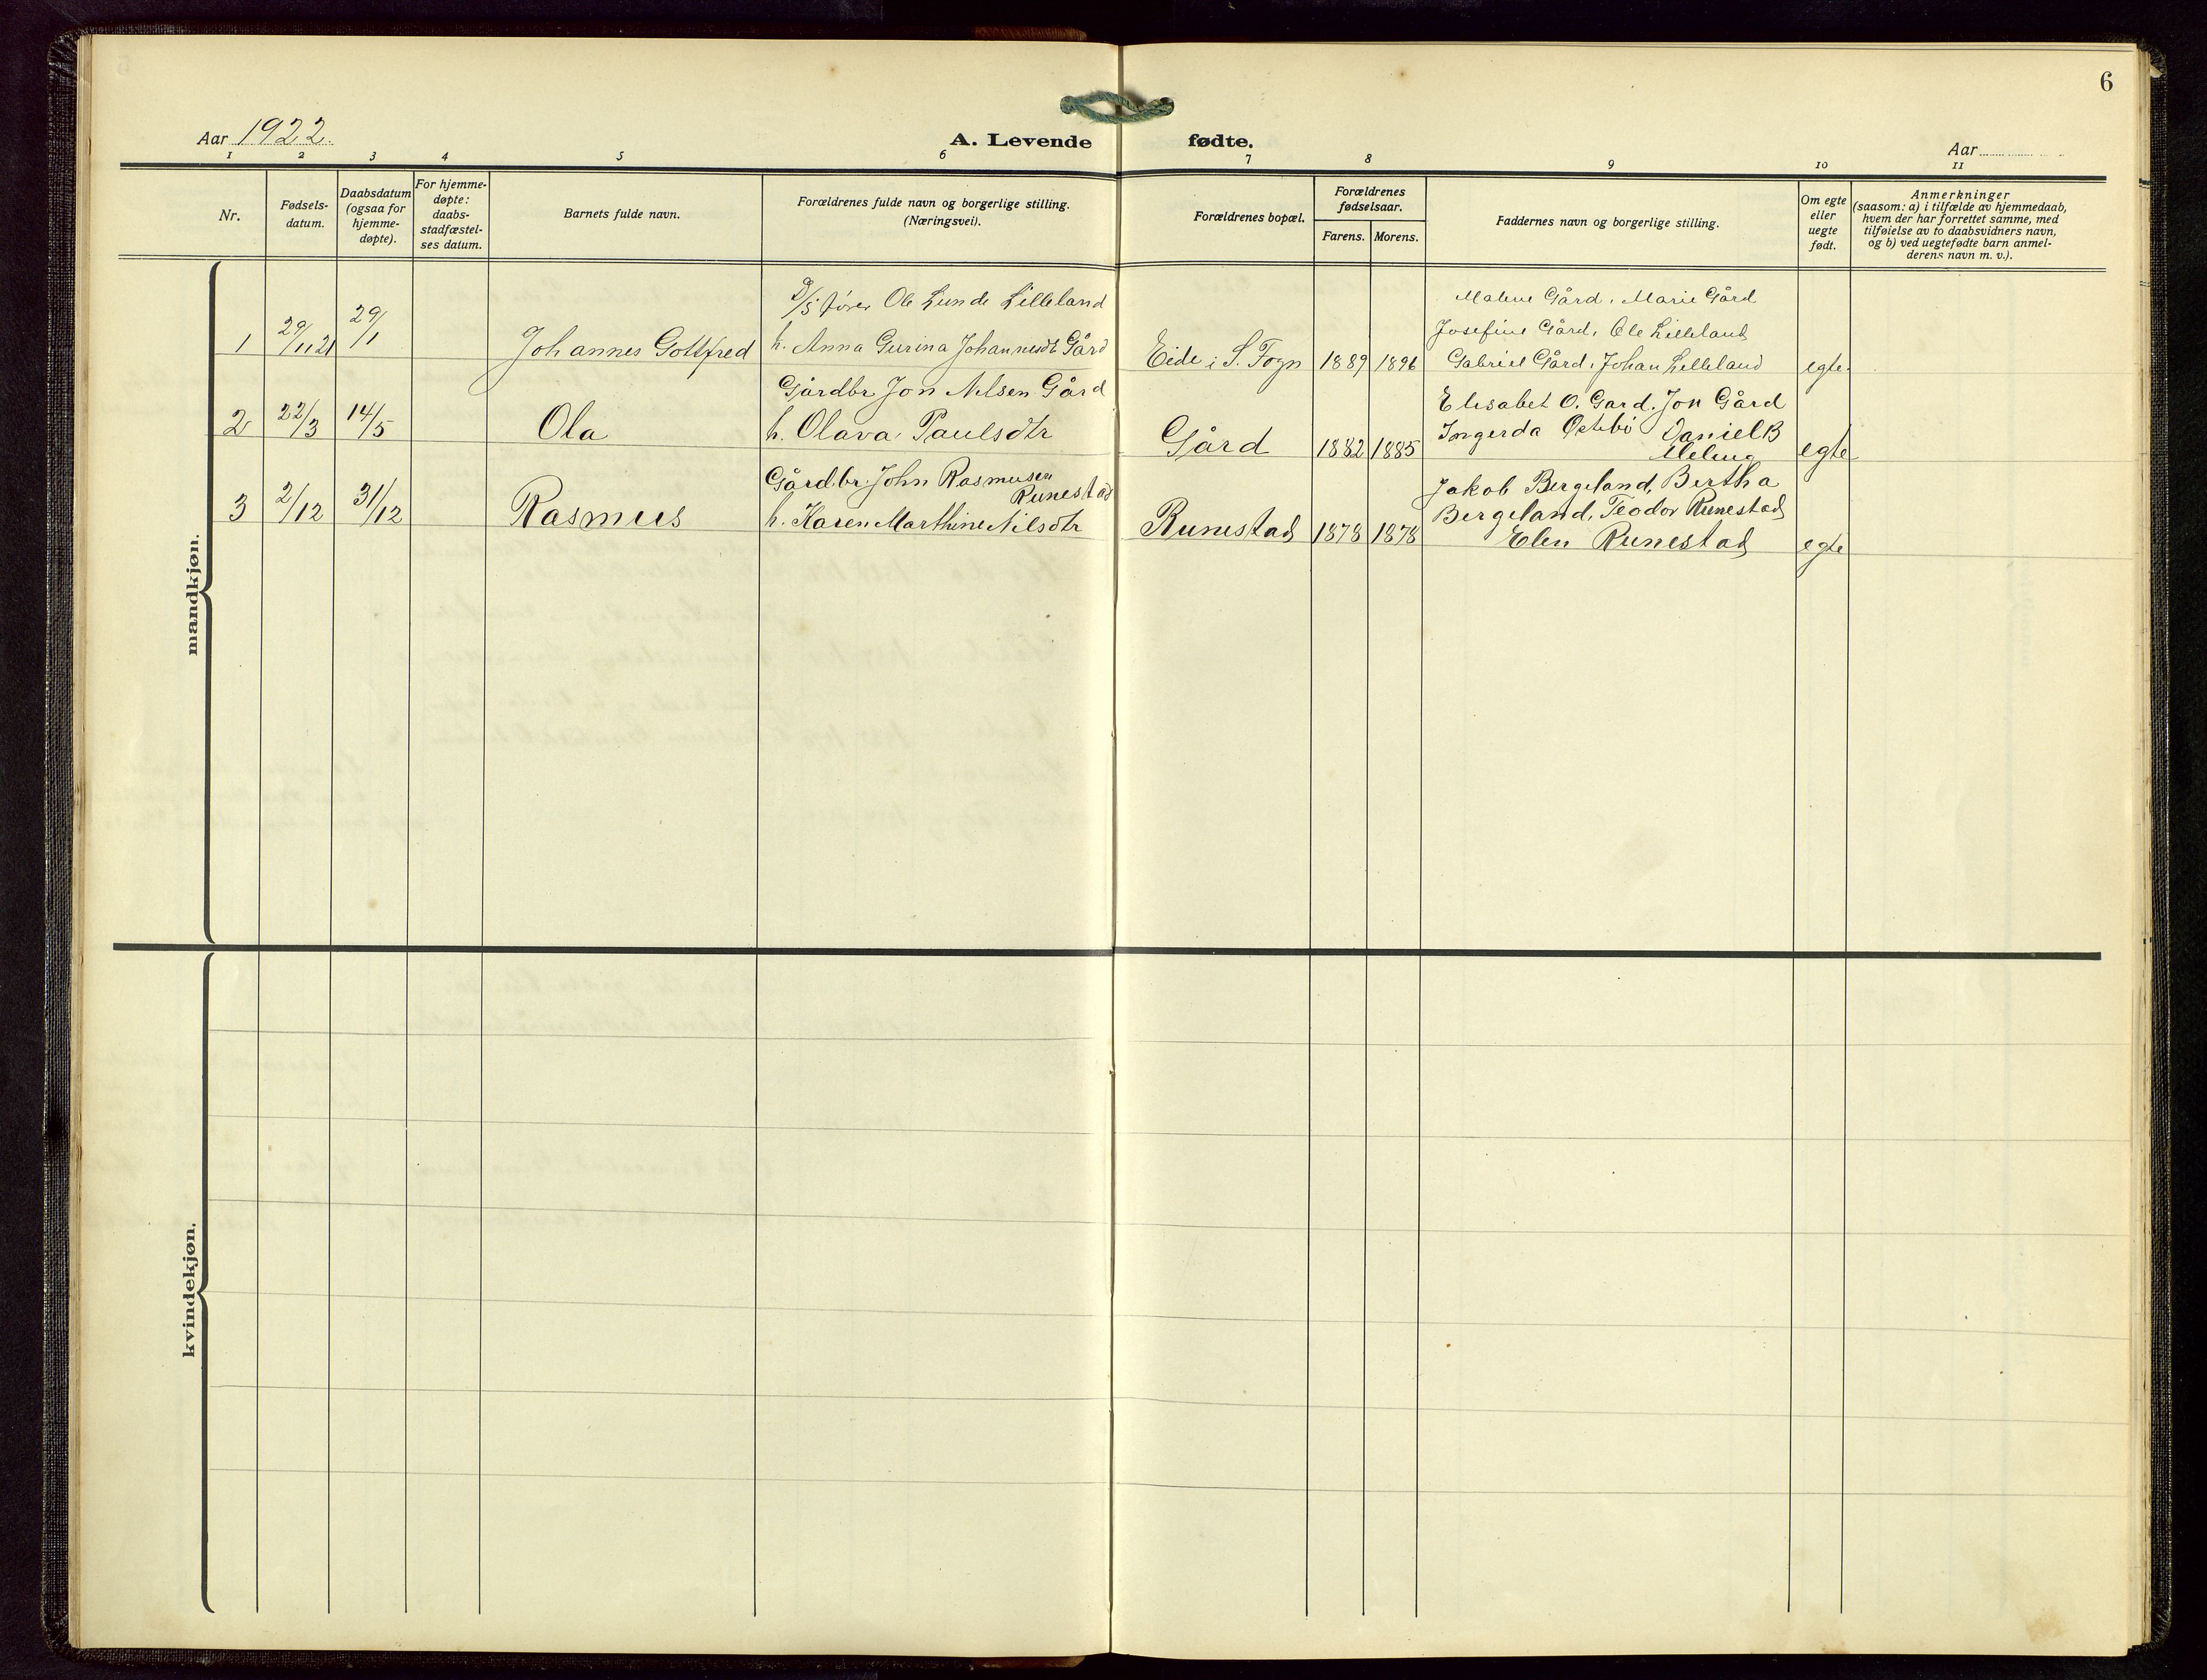 6
Aar 1922.
A. Levende fødte.
Aar
1 2 3 4 5 6 7 8 9 10 11
Nr.
Fødsels-
datum.
Daabsdatum
(ogsaa for
hjemme-
døpte).
For hjemme-
døpte:
daabs-
stadfæstel-
ses datum.
Barnets fulde navn.
Forældrenes fulde navn og borgerlige stilling.
(Næringsvei).
Forældrenes bopæl.
Forældrenes
fødselsaar.
Farens. Morens.
Faddernes navn og borgerlige stilling.
Om egte
eller
uegte
født.
Anmerkninger
(saasom: a) i tilfælde av hjemmedaab,
hvem der har forrettet samme, med
tilføielse av to daabsvidners navn,
og b) ved uegtefødte barn anmel-
derens navn m. v.).
mandkjøn.
1 29/11 21 29/1 Johannes Gottfred
D/S fører Ole Lunde Lilleland
h. Anna Gurina Johannesdt Gård
Eide i S. Fogn 1889 1896
Malene Gård, Marie Gård
Josefine Gård, Ole Lilleland
Gabriel Gård, Johan Lilleland
egte
2 22/3 14/5 Ola
Gårdbr Jon Nilsen Gård
h. Olava Paulsdtr
Gård 1882 1885
Elisabet O. Gard. Jon Gård
Ingerda Østebö Daniel B
Meling
egte
3 2/12 31/12 Rasmus
Gårdbr. John Rasmusen
Runestad
h. Karen Marthine Nilsdtr
Runestad 1878 1878
Jakob Bergeland, Bertha
Bergeland, Teodor Runestad
Elen Runestad
egte
kvindekjøn.